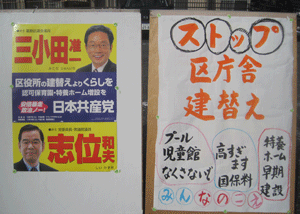 三小田准一
区役所の建替えよりくらしを
認可保育園・特養ホーム増設を
日本共産党
志位和夫
ストップ
区庁舎
建替え
プール
児童館
なくさないで
高すぎ
ます
国保料
特養
ホーム
早期
建設
みんなのこえ